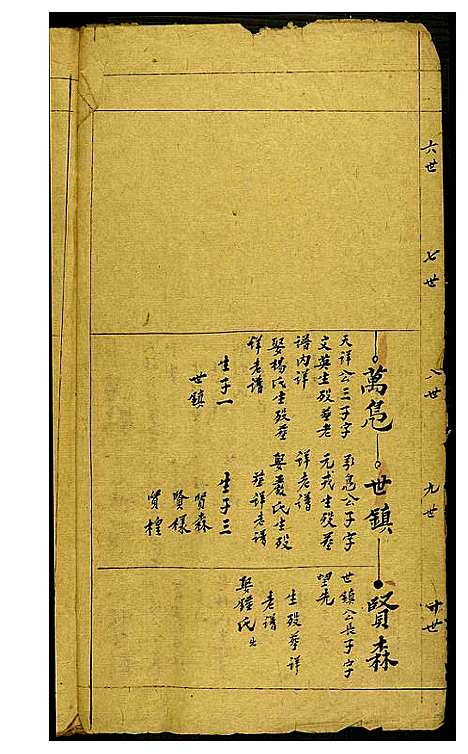 六世
七世
八世
九世
十世
萬鳬
天祥公三子字
文英生殁葬老
譜内詳
娶楊氏生殁葬
詳老譜
生子一
世鎮
世鎮
公子字
元戎生殁葬
詳老譜
娶嚴氏生殁
葬詳老譜
生子三
賢森
賢樣
賢森
世鎮公長子字
望先
生殁葬詳
老譜